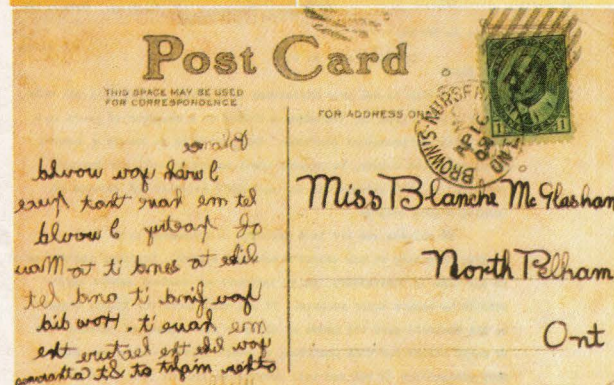 Post Card
THIS SPACE MAY BE USED
FOR CORRESPONDENCE
FOR ADDRESS ONLY
BROWN'S
AP 16
ONT
1 1
I wish you would
let me have that
of Poetry I would
like to send it to
You find it and let
me have it. How did
you like the lecture the
other night at St
Miss Blanche McGlashan
North Pelham
Ont